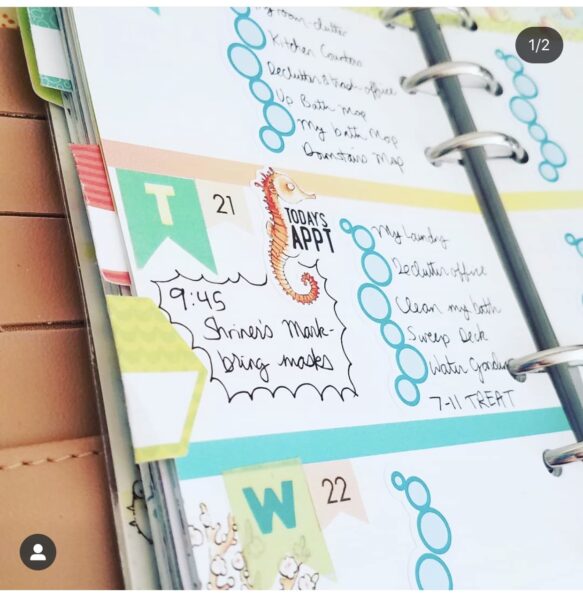 1/2
My room-clutter
Kitchen Counters
Declutter & Trash office
Up Bath Mop
My bath Mop
Downstairs Mop
T
21
TODAY'S
APPT
9:45
Shriner's Mark-
bring masks
My Laundry
Declutter office
Clean my bath
Sweep Deck
Water Garden
7-11 TREAT
W
22